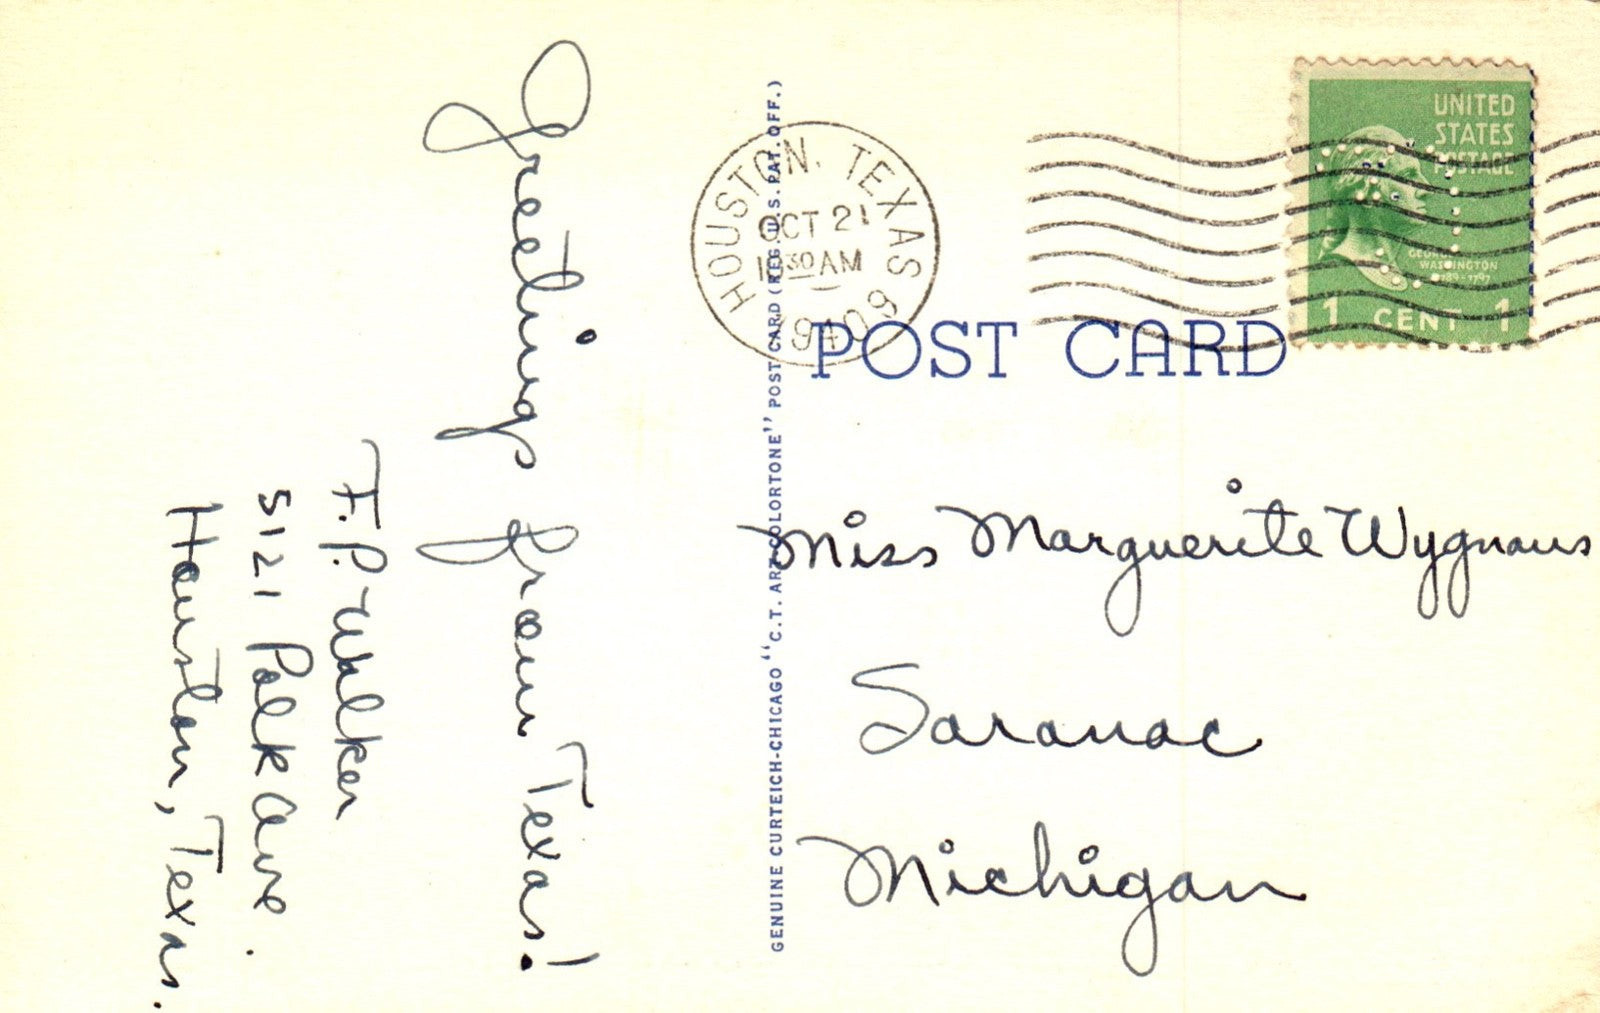 Greetings from Texas!
F. P. Walker
5121 Polk Ave.
Houston, Texas.
GENUINE CURTEICH-CHICAGO "C.T. ART-COLORTONE" POST CARD (REG. U.S. PAT. OFF.)
HOUSTON, TEXAS
OCT 21
10 30 AM
1940
POST CARD
UNITED
STATES
POSTAGE
GEORGE
WASHINGTON
1789-1797
1 CENT 1
Miss Marguerite Wygmans
Saranac
Michigan